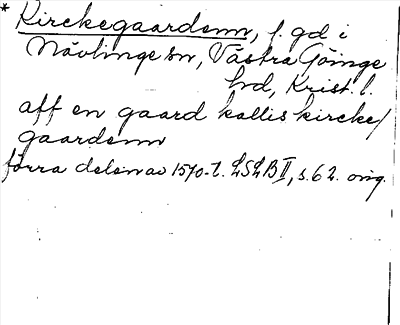 * Kirckegaardenn, f. gd i
Nävlinge sn, Västra Göinge
hd, Krist. l.
aff en gaard kallis kircke/
gaardenn
förra delen av 1570-t. LSLB II, s. 62. orig.